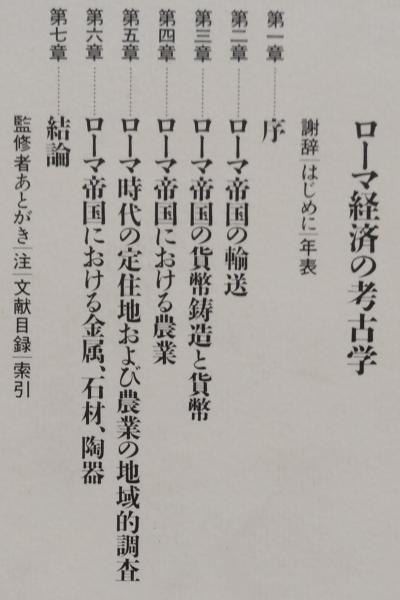 ローマ経済の考古学
謝辞|はじめに|年表
第一章………序
第二章………ローマ帝国の輸送
第三章………ローマ帝国の貨幣鋳造と貨幣
第四章………ローマ帝国における農業
第五章………ローマ時代の定住地および農業の地域的調査
第六章………ローマ帝国における金属、石材、陶器
第七章………結論
監修者あとがき|注|文献目録|索引